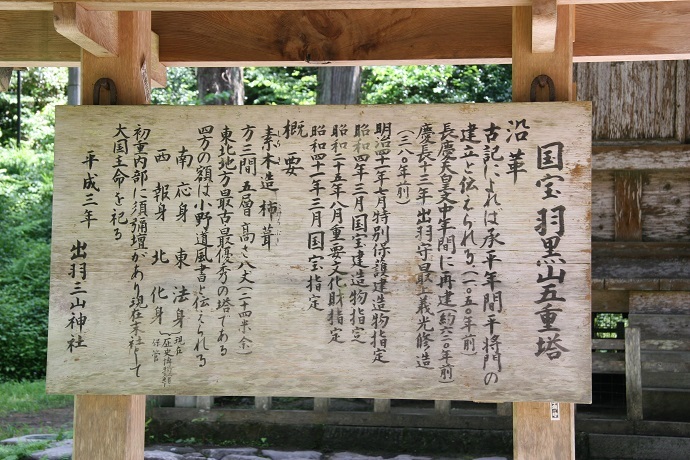 国宝 羽黒山五重塔
沿革
古記によれば承平年間平将門の
建立と伝えられる(一〇五〇年前)
長慶天皇文中年間に再建(約六二〇年前)
慶長十三年出羽守最上義光修造
(三八〇年前)
明治四十一年七月特別保護建造物指定
昭和四年三月国宝建造物指定
昭和二十五年八月重要文化財指定
昭和四十一年三月国宝指定
概要
素木造 杮葺
方三間五層高さ八丈(二十四米余)
東北地方最古最優秀の塔である
四方の額は小野道風書と伝えられる
南 応身 東 法身(現在歴史博物館保管)
西 報身 北 化身
初重内部に須彌壇があり現在末社として
大国主命を祀る
平成三年 出羽三山神社